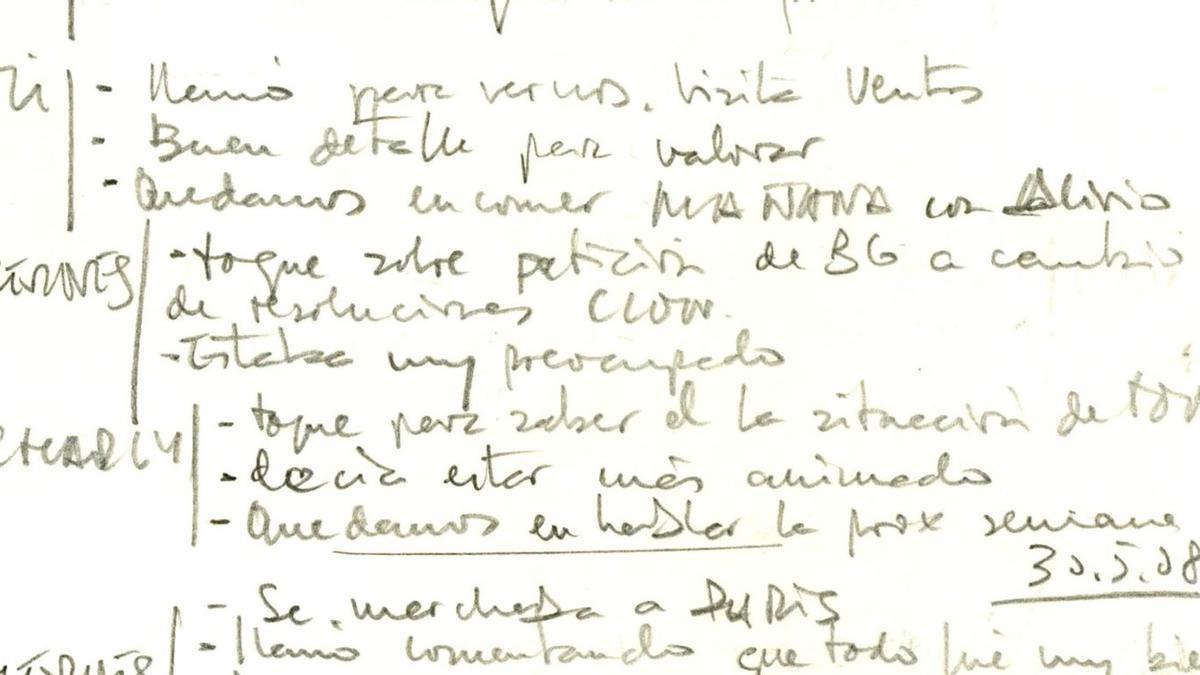 - Llamó para vernos. Visita Ventas
- Buen detalle para valorar
- Quedamos en comer MAÑANA con
- toque sobre petición de BG a cambio
de resoluciones
- Estaba muy preocupado
- toque para saber el la situación de
- decía estar más animado
- Quedamos en hablar la prox semana
30.5.08
- Se marchaba a PARIS
- llamó comentando que todo fué muy bie